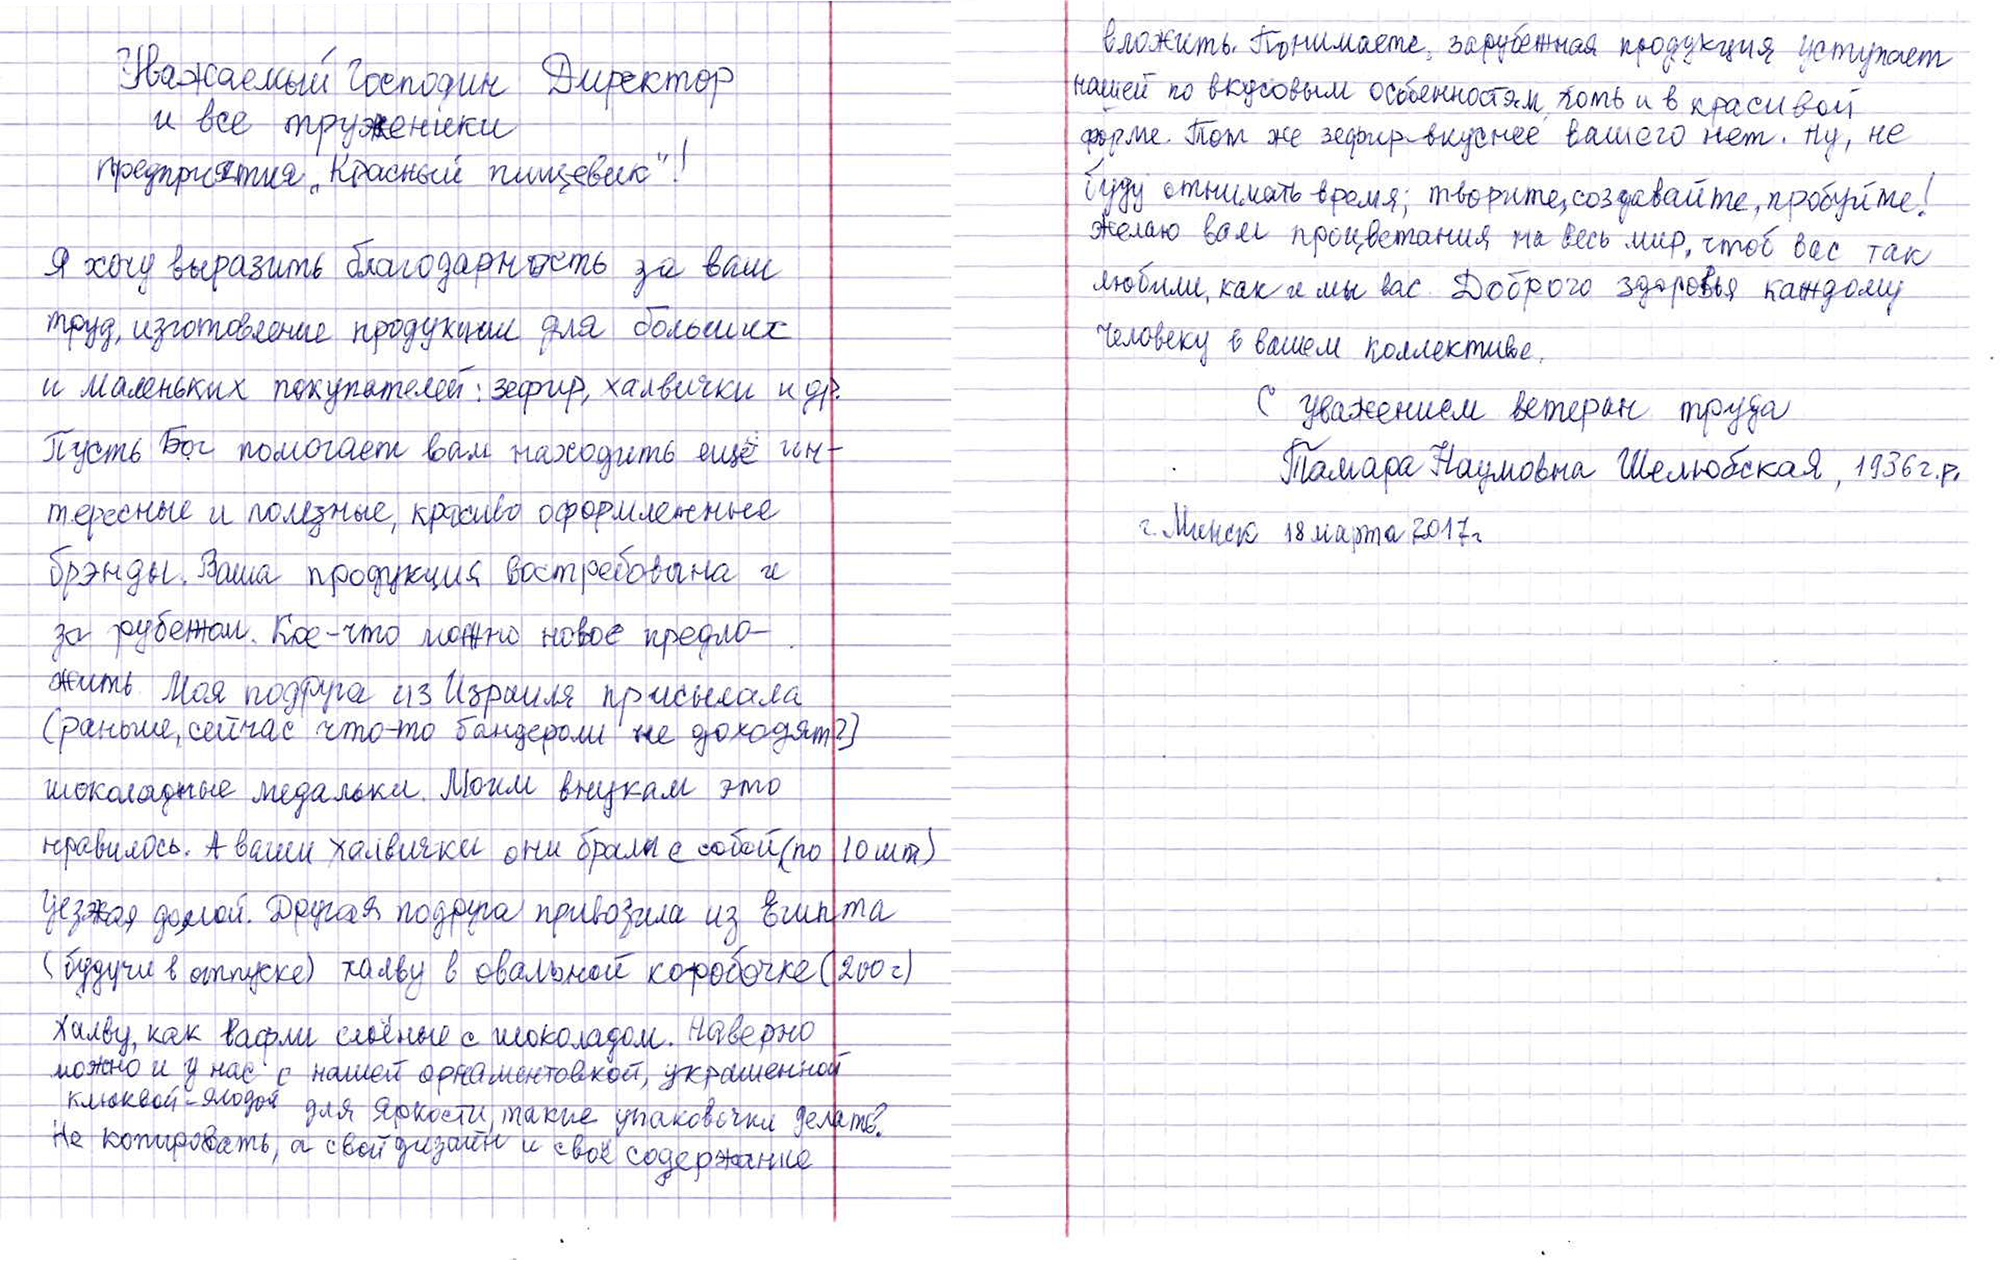 Уважаемый Господин Директор
и все труженики
предприятия „Красный пищевик"!
Я хочу выразить благодарность за ваш
труд, изготовление продукции для больших
и маленьких покупателей: зефир, халвички и др.
Пусть Бог помогает вам находить ещё ин-
тересные и полезные, красиво оформленные
брэнды. Ваша продукция востребована и
за рубежом. Кое-что можно новое предло-
жить. Моя подруга из Израиля присылала
(раньше, сейчас что-то бандероли не доходят?)
шоколадные медальки. Моим внукам это
нравилось. А ваши халвички они брали с собой (по 10 шт)
уезжая домой. Другая подруга привозила из Египта
(будучи в отпуске) халву в овальной коробочке (200 г)
Халву, как вафли слоёные с шоколадом. Наверно
можно и у нас с нашей орнаментовкой, украшенной
клюквой-ягодой для яркости, такие упаковочки делать?
Не копировать, а свой дизайн и своё содержание
вложить. Понимаете, зарубежная продукция уступает
нашей по вкусовым особенностям, хоть и в красивой
форме. Тот же зефир-вкуснее вашего нет. Ну, не
буду отнимать время; творите, создавайте, пробуйте!
Желаю вам процветания на весь мир, чтоб вас так
любили, как и мы вас. Доброго здоровья каждому
человеку в вашем коллективе.
С уважением ветеран труда
Тамара Наумовна Шелюбская, 1936 г.р.
г. Минск 18 марта 2017 г